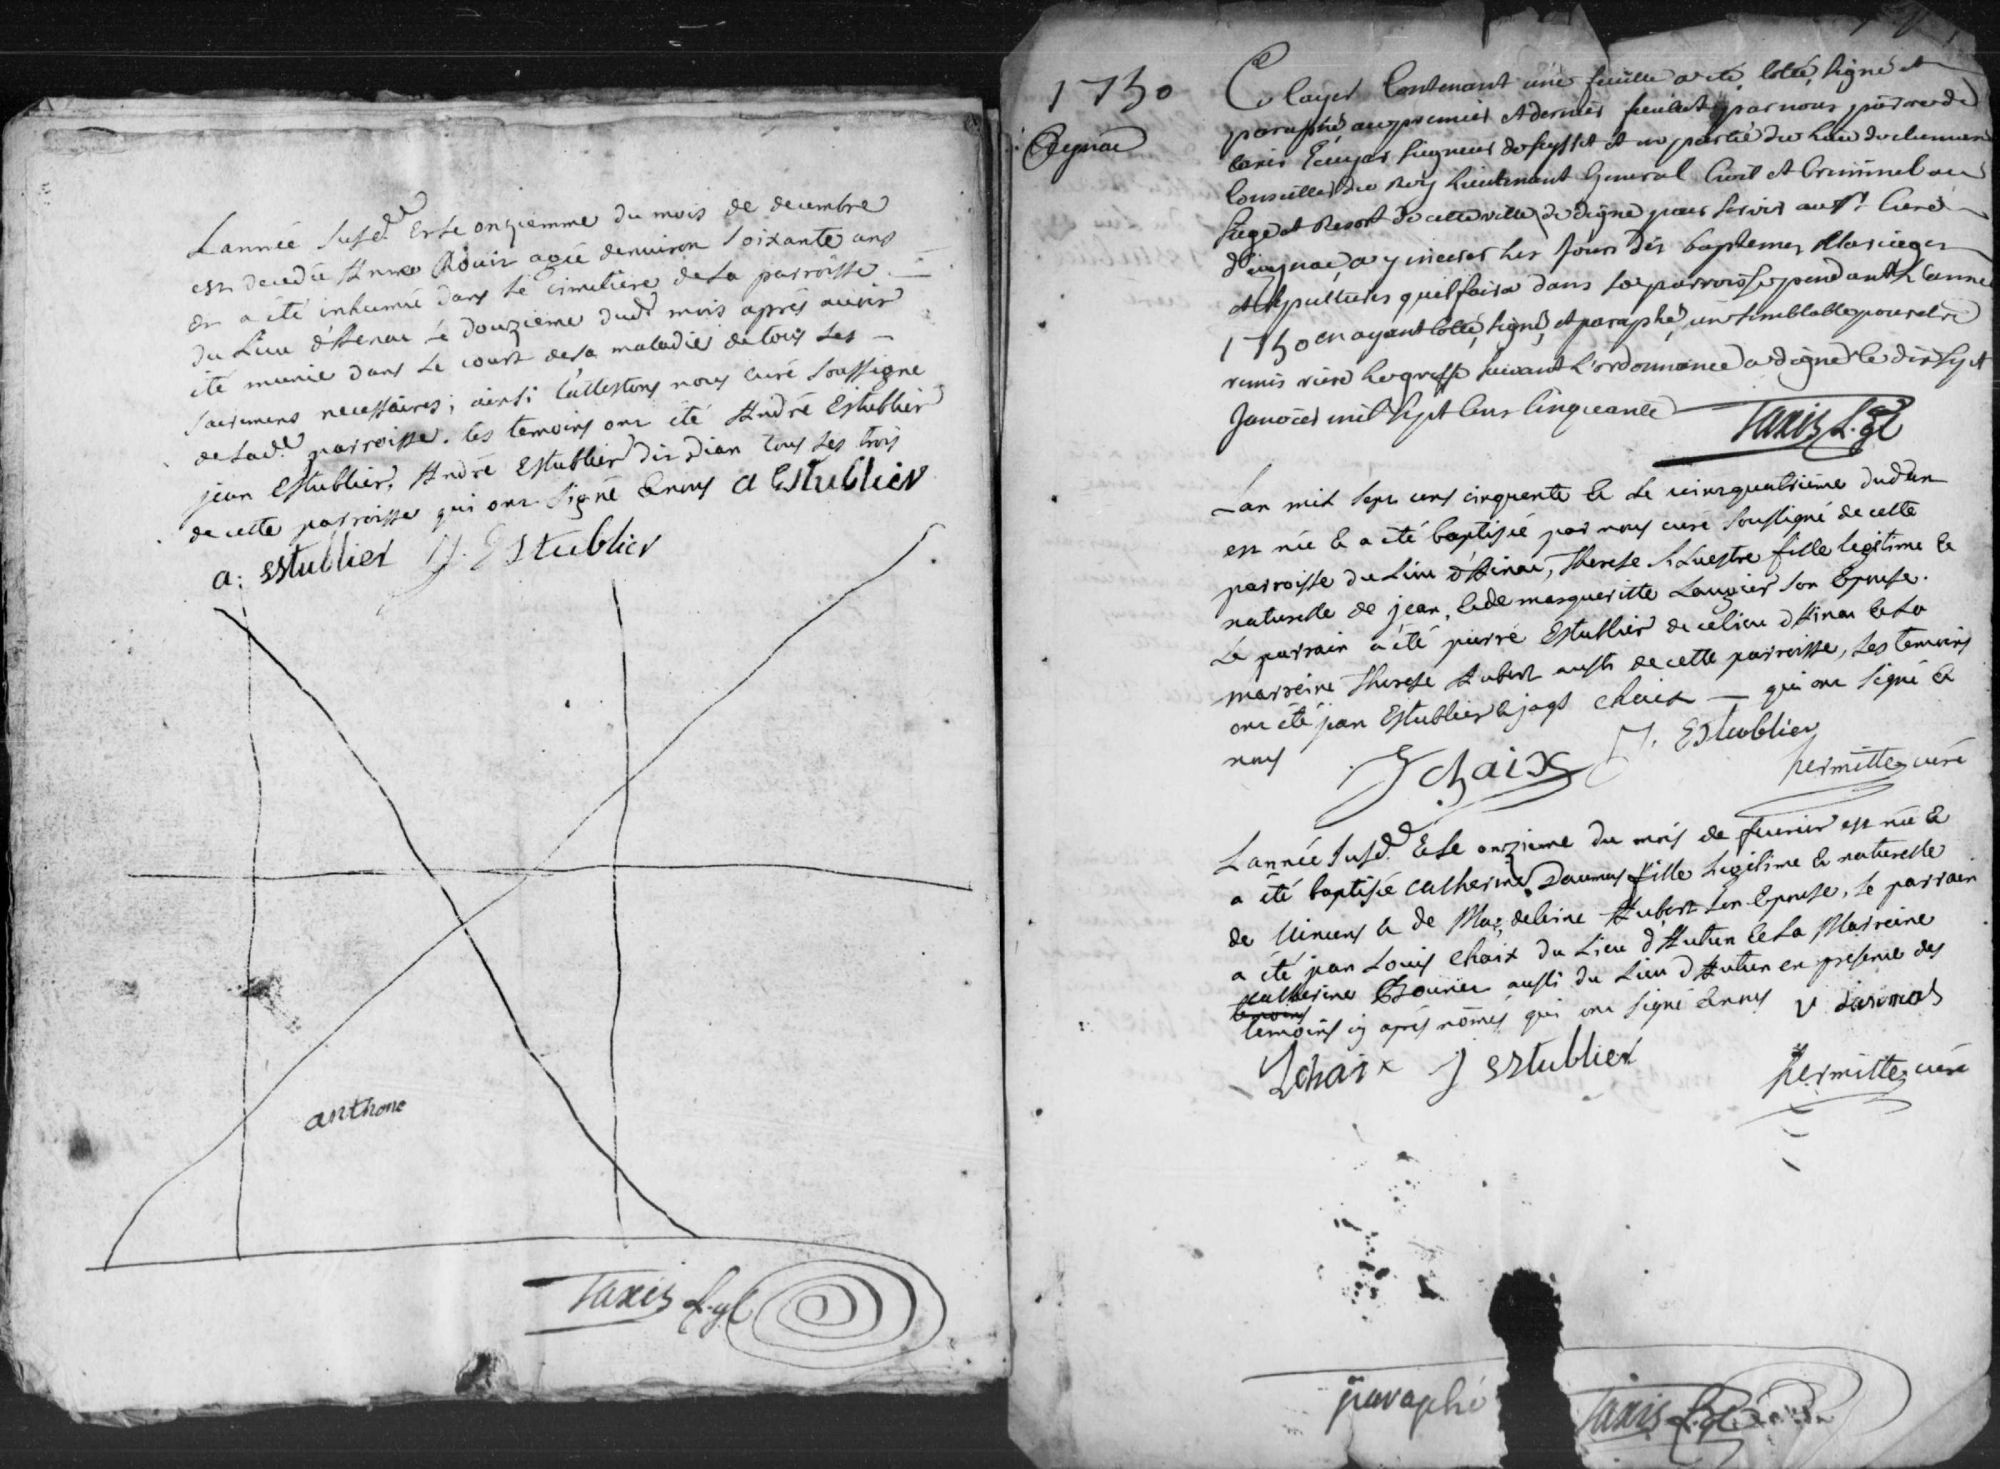 Lannée susd.e et le onziemme du mois de decembre
est decedée Anne Rouir agée denviron soixante ans
et a été inhumée dans le cimetiere de la parroisse
du lieu d'Henac le douzieme dud. mois aprés avoir
été munie dans le court de sa maladie de tous les
sacremens necessaires; ainsi l'attestons nous curé soussigné
de lad.e parroisse. les temoins ont été André Estublier
jean Estublier, André Estublier dit dian tous les trois
de cette parroisse qui ont signé & nous a Estublier
a: estublier J. Estublier
anthone
Taxis L. gl
1750
Aynac
Ce cayer contenant une feuille a eté cotté, signé et
paraphé au premier et dernier feuilet par nous pierre de
taxis Ecuyer seigneur de et en partie du
Conseiller du Roy Lieutenant General Civil et Criminel au
siege et Resort de cette ville de digne pour servir au Sr. Curé
d'aynac a y inserer les jours des baptemes Mariages
et sepultures qu'il faira dans sa parroisse pendant l'année
1750 en ayant cotté, signé et paraphé, un semblable pour etre
remis riere le greffe suivant l'ordonnance a digne le dix sept
Janvier mil sept cens cinquante
Taxis L. gl
Lan mil sept cens cinquante & le vint quatrieme dud. an
est née & a été baptisée par nous curé soussigné de cette
parroisse du lieu d'Ainac, Therese Siluestre fille legitime &
naturelle de jean, & de margueritte Laugier son Epouse.
Le parrain a été pierre Estublier de ce lieu d'Ainac & la
marreine Therese Aubert aussi de cette parroisse, les temoins
ont été jean Estublier & jaqs chaix — qui ont signé &
nous
J chaix J. Estublier
hermitte curé
Lannée susd.e & le onzieme du mois de feurier est née &
a été baptisée catherine Daumas fille legitime & naturelle
de Vincens & de Magdeleine Aubert son Epouse, le parrain
a été jean Louis Chaix du Lieu d'Auten & la Marreine
catherine Bourier aussi du Lieu d'Auten en presence des
temoins
temoins cy aprés nômés qui ont signé & nous v daumas
J chaix J estublier hermitte curé
paraphé Taxis L. gl